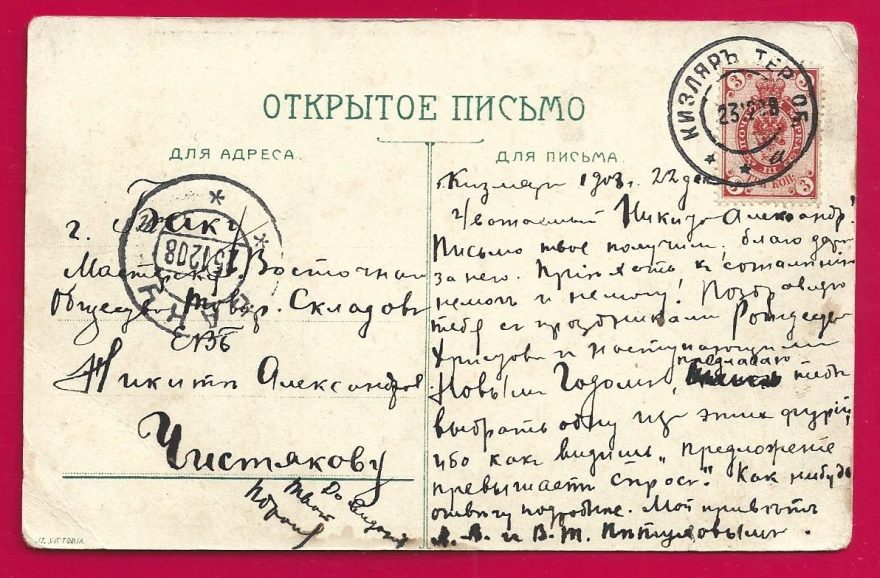 ОТКРЫТОЕ ПИСЬМО
ДЛЯ АДРЕСА.
ДЛЯ ПИСЬМА.
КИЗЛЯРЪ ТЕР. ОБ.
23 12 08
3
3
3
3
БАКУ
25 12 08
г. Баку
Восточнаго
Общества Товар. Складовъ
ЕВБ
Никитѣ Александров
Чистякову
До
Твой
г. Кизляръ 1908 г. 22 дек
Никита Александр!
Письмо твое получилъ, благодарю
за него. Пріѣхать къ сожалѣнію
немогъ и немогу! Поздравляю
тебя съ праздниками Рождества
Христова и наступающимъ
Новымъ Годомъ, предлагаю тебѣ
выбрать одну изъ этихъ фигуръ,
ибо какъ видишь, „предложеніе
превышаетъ спросъ". Какъ нибудь
опишу подробнѣе. Мой привѣтъ
А. В. и В. Т.
ST. VICTORIA.